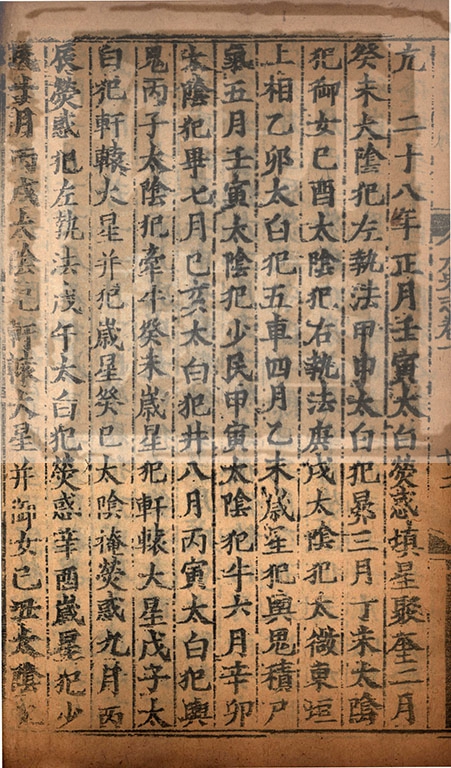 亢　二十八年正月壬寅太白熒惑填星聚奎二月
癸未太陰犯左執法甲申太白犯昴三月丁未太陰
犯御女己酉太陰犯右執法庚戌太陰犯太微東垣
上相乙卯太白犯五車四月乙未歲星犯輿鬼積尸
氣五月壬寅太陰犯少民甲寅太陰犯牛六月辛卯
太陰犯畢七月己亥太白犯井八月丙寅太白犯輿
鬼丙子太陰犯牽牛癸未歲星犯軒轅大星戊子太
白犯軒轅大星并犯歲星癸巳太陰掩熒惑九月丙
辰熒惑犯左執法戊午太白犯熒惑辛酉歲星犯少
十月丙戌太陰犯軒轅大星并御女己丑太陰